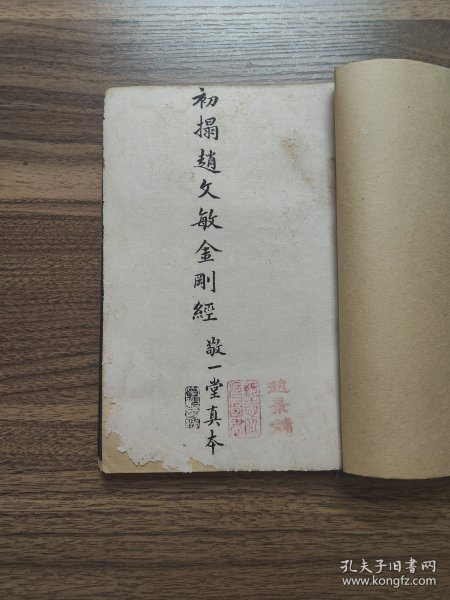 初搨趙文敏金剛經
敬一堂真本
孔夫子旧书网
www.kongfz.com